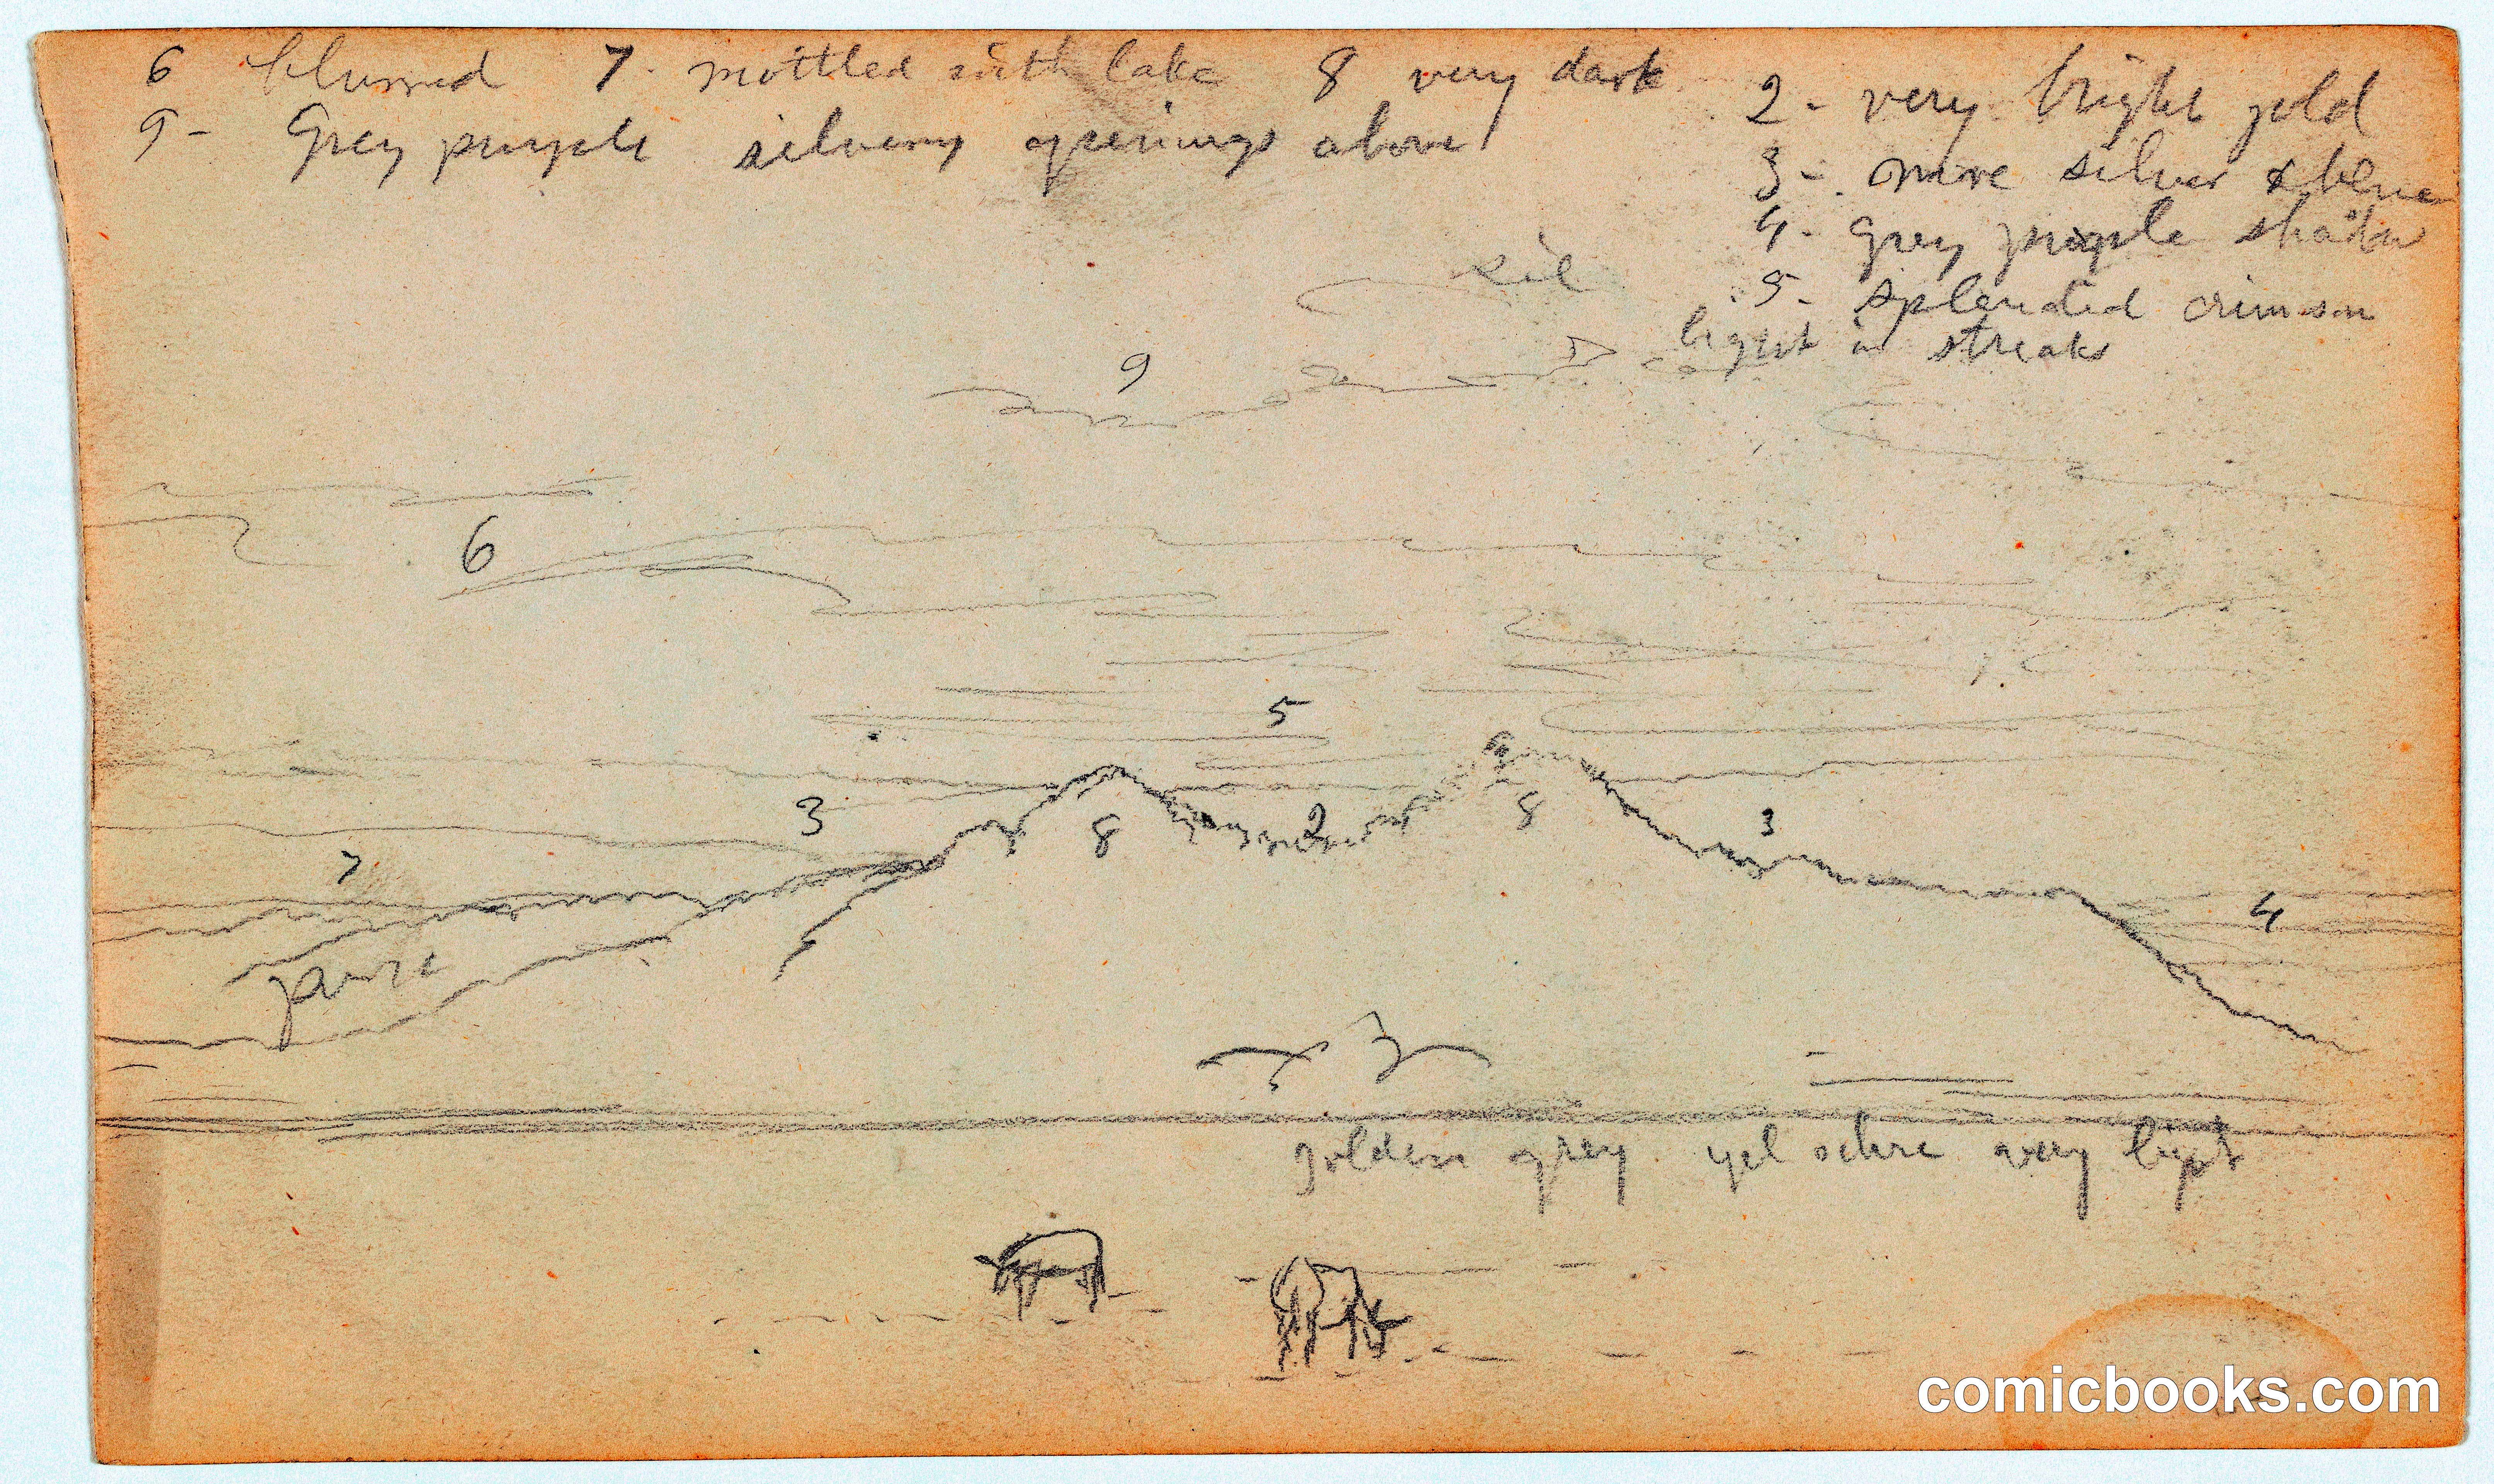 6 blurred 7. mottled with lake 8 very dark
9- Grey purple silvery openings above
2- very bright gold
3- more silver & blue
4- grey purple shadow
5- splendid crimson
light in streaks
sil
9
6
5
3 8 2 8 3
7
4
golden grey yel ochre very light
comicbooks.com